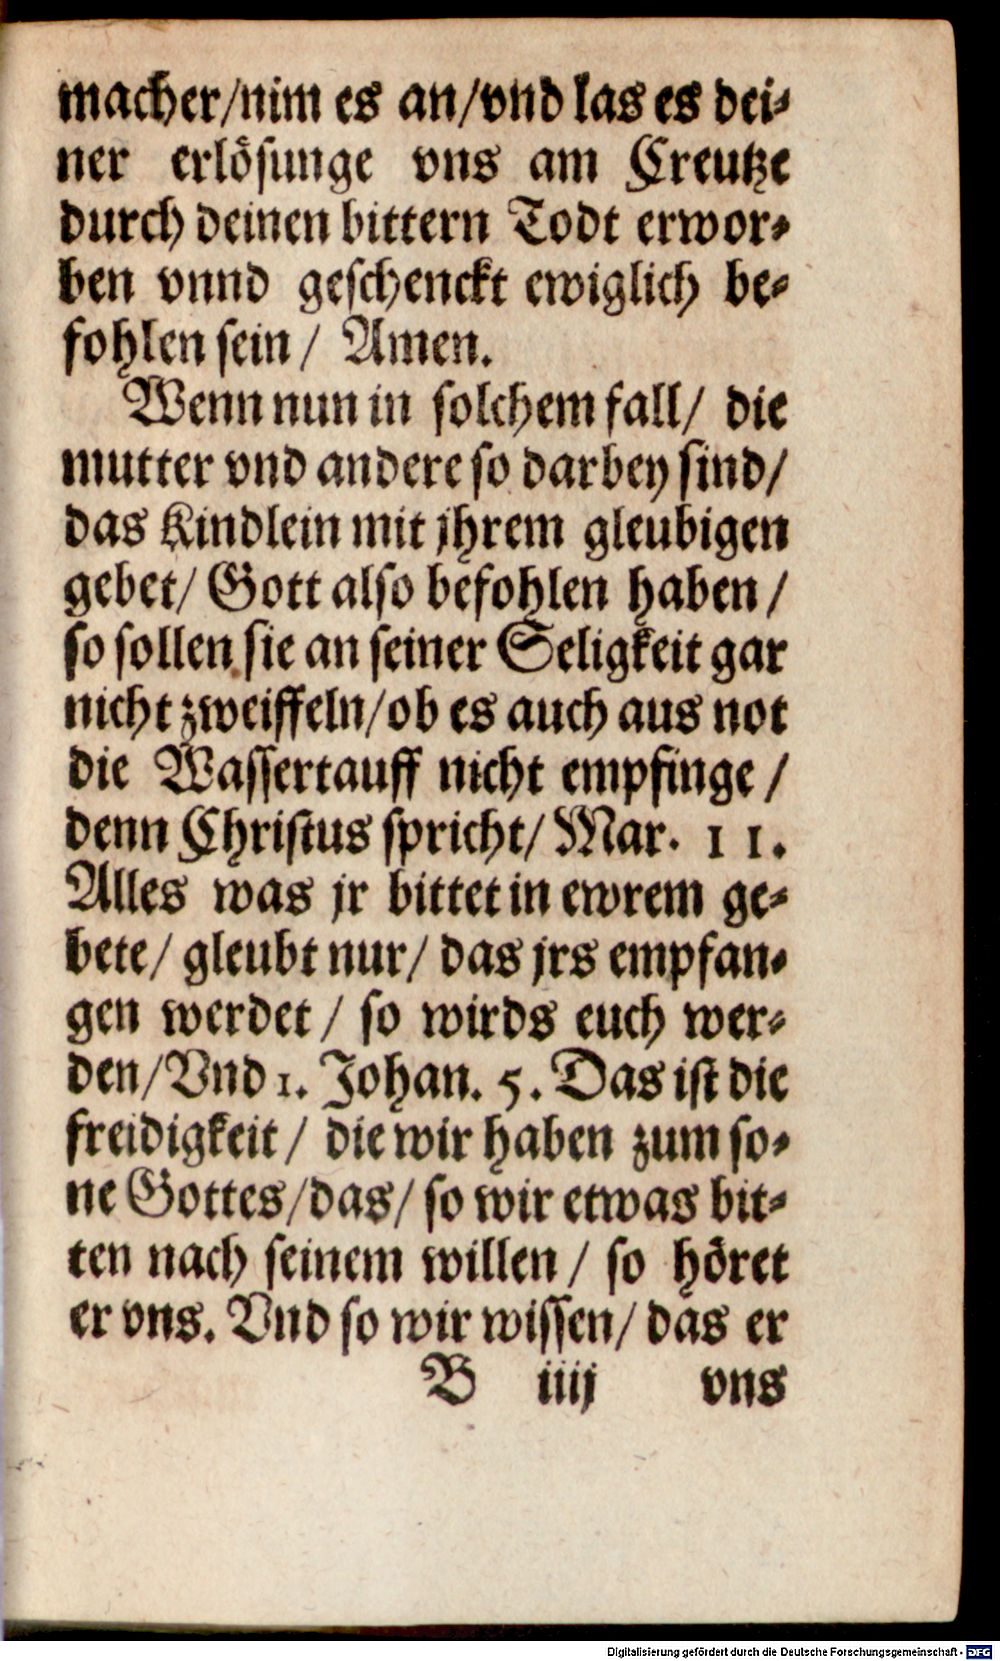 macher/nim es an/vnd las es dei-
ner erlösunge vns am Creutze
durch deinen bittern Todt erwor-
ben vnnd geschenckt ewiglich be-
fohlen sein / Amen.
Wenn nun in solchem fall/ die
mutter vnd andere so darbey sind/
das Kindlein mit jhrem gleubigen
gebet/ Gott also befohlen haben /
so sollen sie an seiner Seligkeit gar
nicht zweiffeln/ob es auch aus not
die Wassertauff nicht empfinge /
denn Christus spricht/ Mar. 11.
Alles was jr bittet in ewrem ge-
bete/ gleubt nur/ das jrs empfan-
gen werdet / so wirds euch wer-
den/Vnd 1. Johan. 5. Das ist die
freidigkeit / die wir haben zum so-
ne Gottes/das/ so wir etwas bit-
ten nach seinem willen / so höret
er vns. Vnd so wir wissen/ das er
B iiij vns
Digitalisierung gefördert durch die Deutsche Forschungsgemeinschaft - DFG